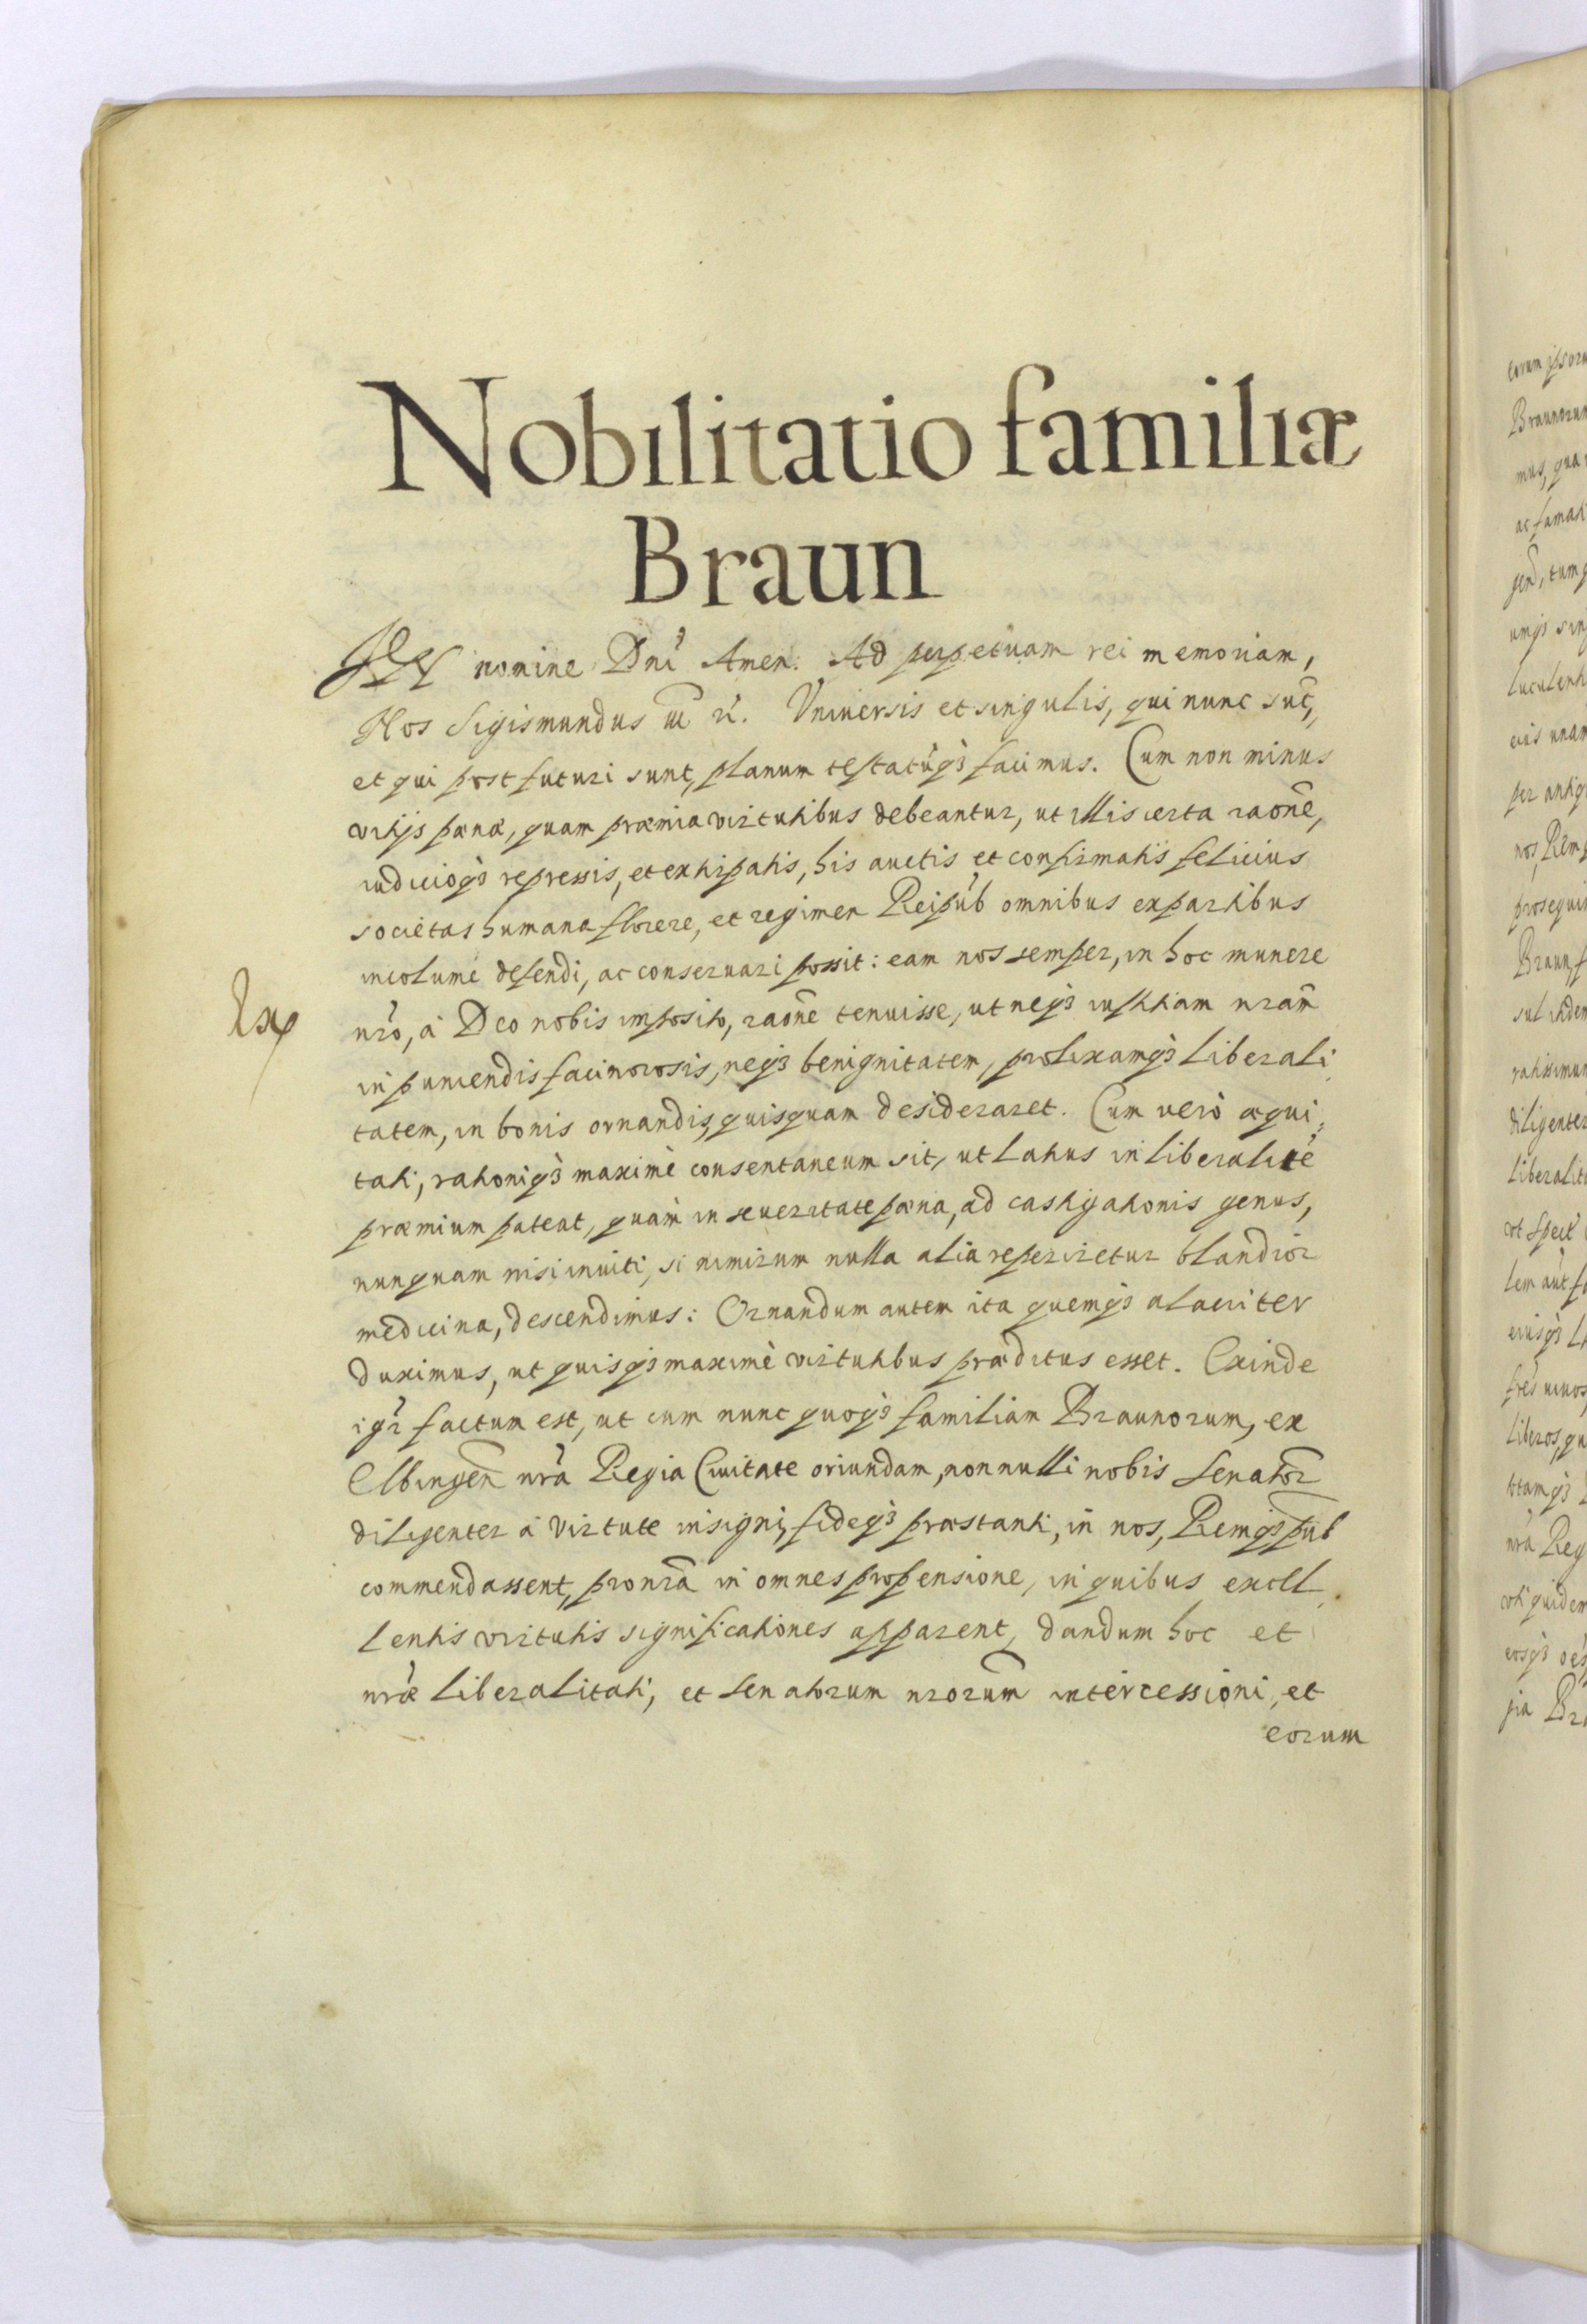 Nobilitatio familiæ
Braun
IN nomine Dni Amen. Ad perpetuam rei memoriam,
Nos Sigismundus III
Vniuersis et singulis, qui nunc sut,
et qui post futuri sunt, planum testatuq3 facimus. Cum non minus
vitijs pænæ, quam præmia virtutibus debeantur, ut illis certa raone,
iudicioq3 repressis, et extirpatis, his auctis et confirmatis felicius
societas humana florere, et regimen Reipub omnibus expartibus
incolume defendi, ac conseruari possit: eam nos semper, in hoc munere
Exp
nro, à Deo nobis imposito, raone tenuisse, ut neq3 iustitiam nram
in puniendis facinorosis, neq3 benignitatem, prolixamq3 liberali
tatem, in bonis ornandis, quisquam desideraret. Cum verò æqui
tati, rationiq3 maximè consentaneum sit, ut latius in liberalite
præmium pateat, quàm in seueritate pæna, ad castigationis genus,
nunquam nisi inuiti, si nimirum nulla alia reperiretur blandior
medicina, descendimus: Ornandum autem ita quemq3 alacriter
duximus, ut quisq3 maximè virtutibus præditus esset. Exinde
igr factum est, ut cum nunc quoq3 familiam Braunorum, ex
Elbingen nra Regia Ciuitate oriundam, nonnulli nobis Senator
diligenter à virtute insigni, fideq3 præstanti, in nos, Remq3 pub
commendassent, pro nra in omnes propensione, in quibus excel
lentis virtutis significationes apparent, dandum hoc et
nræ liberalitati, et Senatorum nrorum intercessioni, et
eorum